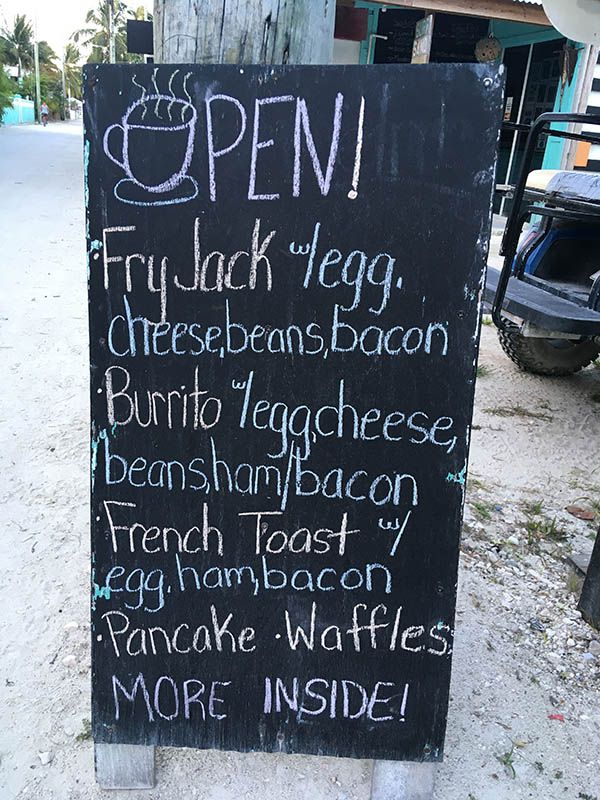 OPEN!
·Fry Jack w/egg,
cheese,beans,bacon
·Burrito w/egg,cheese,
beans,ham/bacon
·French Toast w/
egg,ham,bacon
·Pancake ·Waffles
MORE INSIDE!